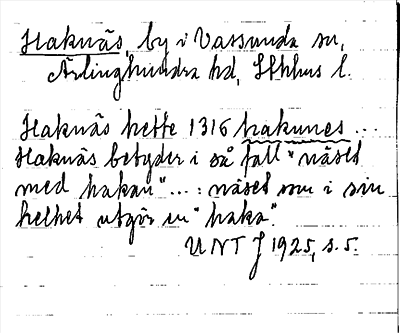 Haknäs, by i Vassunda sn,
Ärlinghundra hd, Sthlms l.
Haknäs hette 1316 hakunes ...
Haknäs betyder i så fall "näset
med hakan" ... : näset som i sin
helhet utgör en "haka".
UNT J 1925, s. 5.